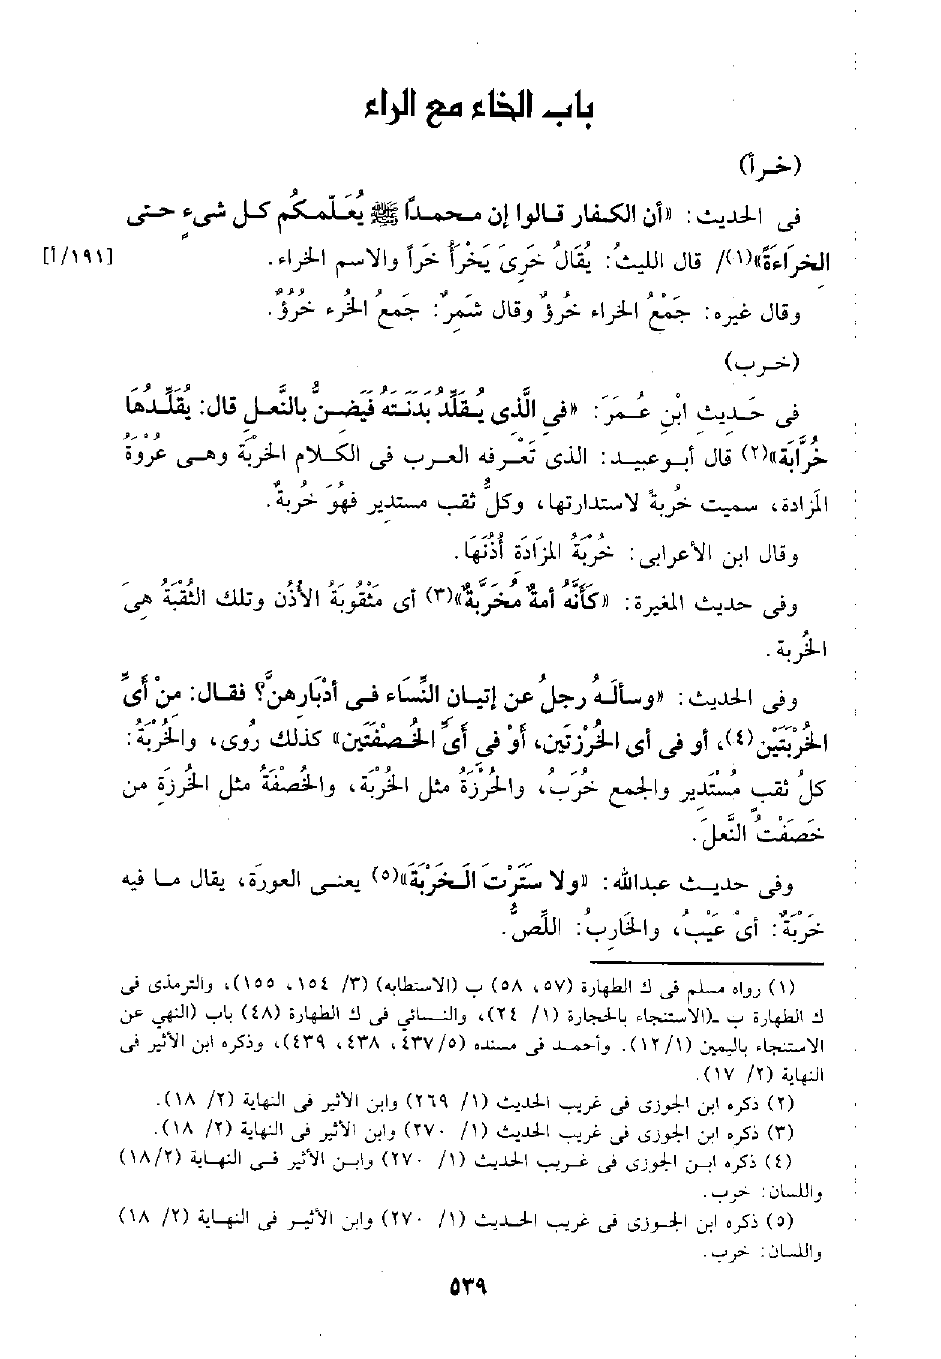 باب الخاء مع الراء
(خرأ)
فى الحديث: «أن الكفار قالوا إن محمداً ﷺ يُعَلّمكُم كل شىءٍ حتى
الخرَاءَةَ»(١)/ قال الليثُ: يُقَالُ خَرِئَ يَخْرأُ خَرأً والاسم الخراء.
[١٩١/أ]
وقال غيره: جَمْعُ الخراء خُروُّ وقال شَمرٌ: جَمعُ الخُرء خُرُؤٌ.
(خرب)
فى حَديث ابْنِ عُمرَ: «فى الَّذى يُقلِّدُ بَدَنَتَه فَيَضنُّ بالنَّعلِ قال: يُقلِّدهَا
خُرَّابَة»(٢) قال أبوعبيد: الذى تَعْرفه العرب فى الكلام الخربَة وهى عُرْوَةُ
المَزادة، سميت خُربةً لاستدارتها، وكلُّ ثقب مستدير فهُوَ خُربةٌ.
وقال ابن الأعرابى: خُرْبَةُ المزَادَة أُذُنُهَا.
وفى حديث المغيرة: «كَأَنَّه أمةٌ مُخَرَّبَةٌ»(٣) أى مَثْقُوبَةُ الأذُن وتلك الثُقْبَةُ هىَ
الخُربة.
وفى الحديث: «وسألَهُ رجلٌ عن إتيان النِّسَاء فى أدْبَارهنَّ؟ فقال: منْ أىِّ
الخُرْبَتَيْن(٤)، أو فى أى الخُرْزتَين، أوْ فى أىِّ الخُصفْتَين» كذلك رُوى، والخُرْبَةُ:
كلُ ثقب مُسْتَدير والجمع خُرَبُ، والخُرْزَةُ مثل الخُرْبَة، والخُصْفَةُ مثل الخُرزَةِ من
خَصَفْتُ النَّعلَ.
وفى حديث عبدالله: «ولا سَتَرْتَ الخَرْبَةَ»(٥) يعنى العورَة، يقال ما فيه
خَرْبَةٌ: أىْ عَيْبُ، والخَاربُ: اللصُّ.
(١) رواه مسلم فى ك الطهارة (٥٧، ٥٨) ب (الاستطابه) (٣/ ١٥٤، ١٥٥)، والترمذى فى
ك الطهارة ب ـ(الاستنجاء بالحجارة (١/ ٢٤)، والنسائي فى ك الطهارة (٤٨) باب (النهي عن
الاستنجاء باليمين (١/ ١٢). وأحمد فى مسنده (٥/ ٤٣٧، ٤٣٨، ٤٣٩)، وذكره ابن الأثير فى
النهاية (٢/ ١٧).
(٢) ذكره ابن الجوزى فى غريب الحديث (١/ ٢٦٩) وابن الأثير فى النهاية (٢/ ١٨).
(٣) ذكره ابن الجوزى فى غريب الحديث (١/ ٢٧٠) وابن الأثير فى النهاية (٢/ ١٨).
(٤) ذكره ابن الجوزى فى غريب الحديث (١/ ٢٧٠) وابن الأثير فى النهاية (٢/ ١٨)
واللسان: خرب.
(٥) ذكره ابن الجوزى فى غريب الحديث (١/ ٢٧٠) وابن الأثير فى النهاية (٢/ ١٨)
واللسان: خرب.
٥٣٩